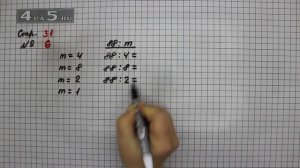 4on5.ru
Стр. 31
№ 6
88 : m
m = 4 88 : 4 =
m = 8 88 : 8 =
m = 2 88 : 2 =
m = 1